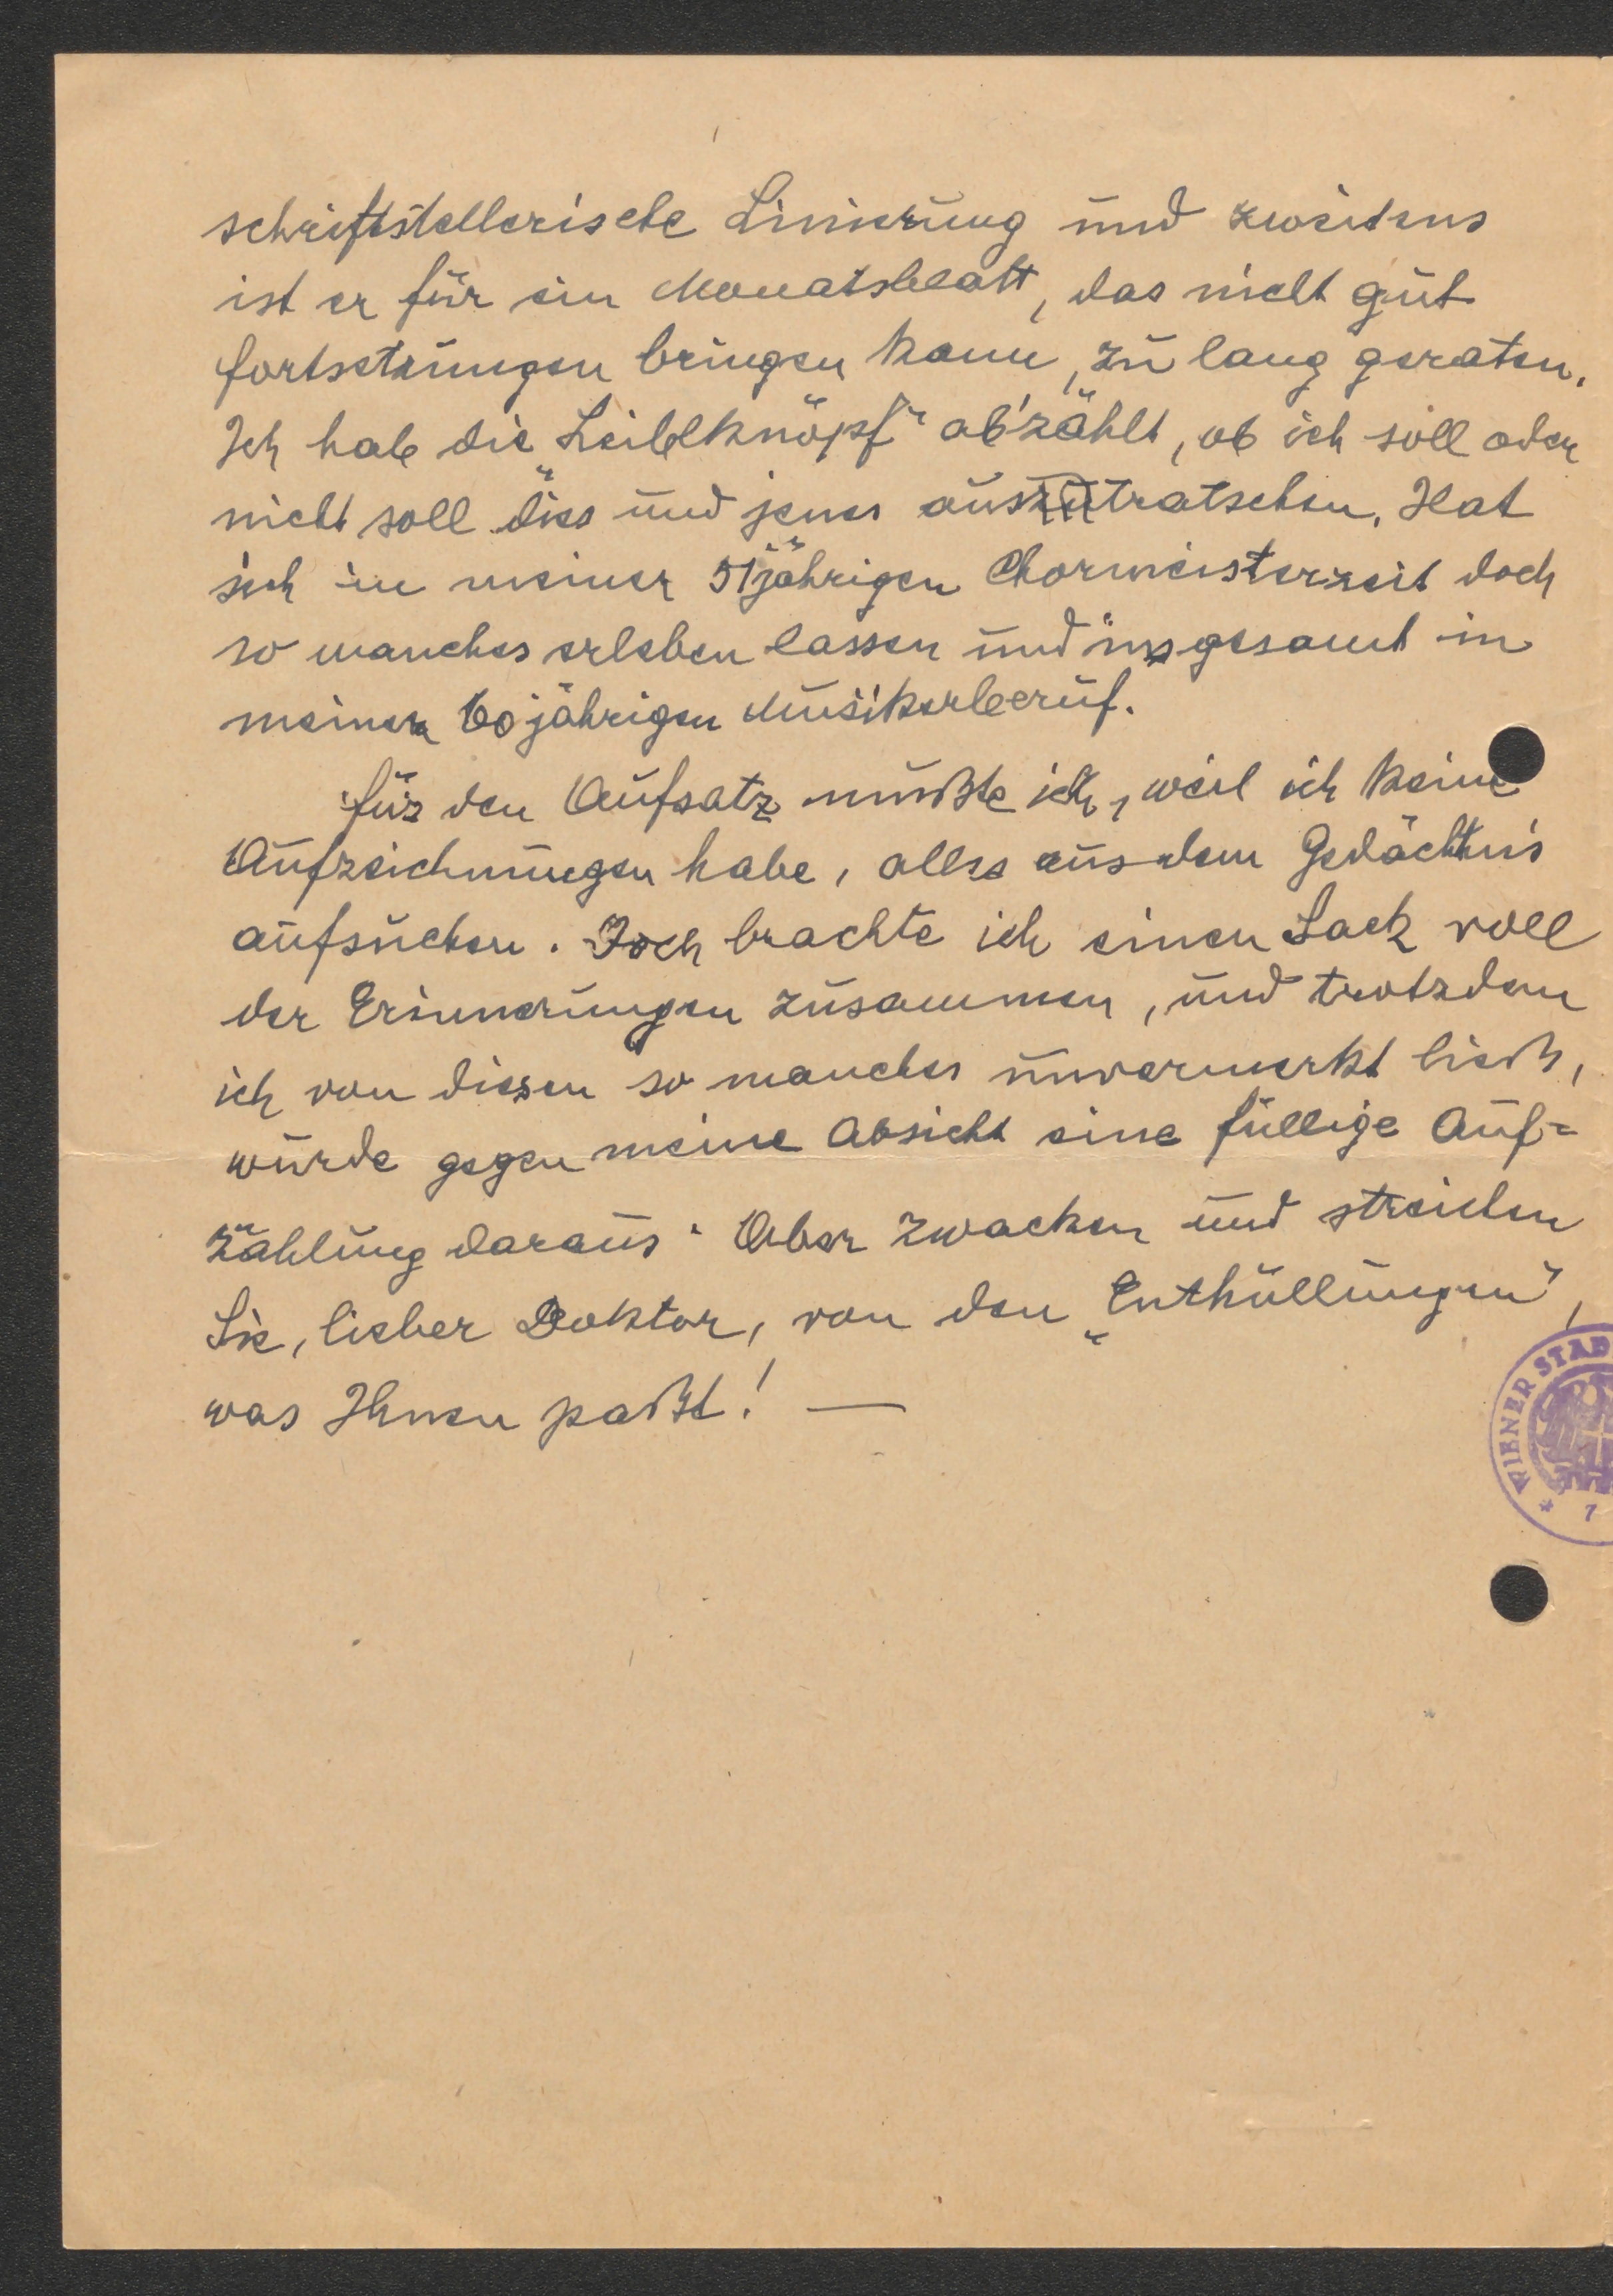 schriftstellerische Linierung und zweitens
ist er für ein Monatsblatt, das nicht gut
Fortsetzungen bringen kann, zu lang geraten.
Ich hab die „Leiblknöpf“ ab'zählt, ob ich soll oder
nicht soll dies und jenes auszutratschen. Hat
sich in meiner 51jährigen Chormeisterzeit doch
so manches erleben lassen und insgesamt in
meinem 60jährigen Musikerberuf.
Für den Aufsatz mußte ich, weil ich keine
Aufzeichnungen habe, alles aus dem Gedächtnis
aufsuchen. Doch brachte ich einen Sack voll
der Erinnerungen zusammen, und trotzdem
ich von diesen so manches unvermerkt ließ,
wurde gegen meine Absicht eine füllige Auf=
zählung daraus. Aber zwacken und streichen
Sie, lieber Doktor, von den „Enthüllungen“,
was Ihnen paßt! —
WIENER STAD
* 1